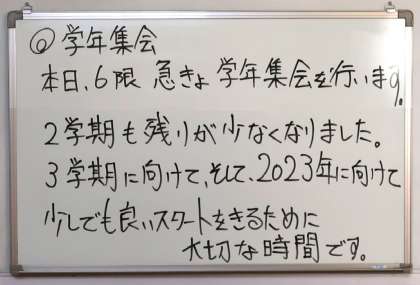 ◎学年集会
本日、6限 急きょ 学年集会を行います。
2学期も残りが少なくなりました。
3学期に向けて、そして、2023年に向けて
少しでも良いスタートをきるために
大切な時間です。